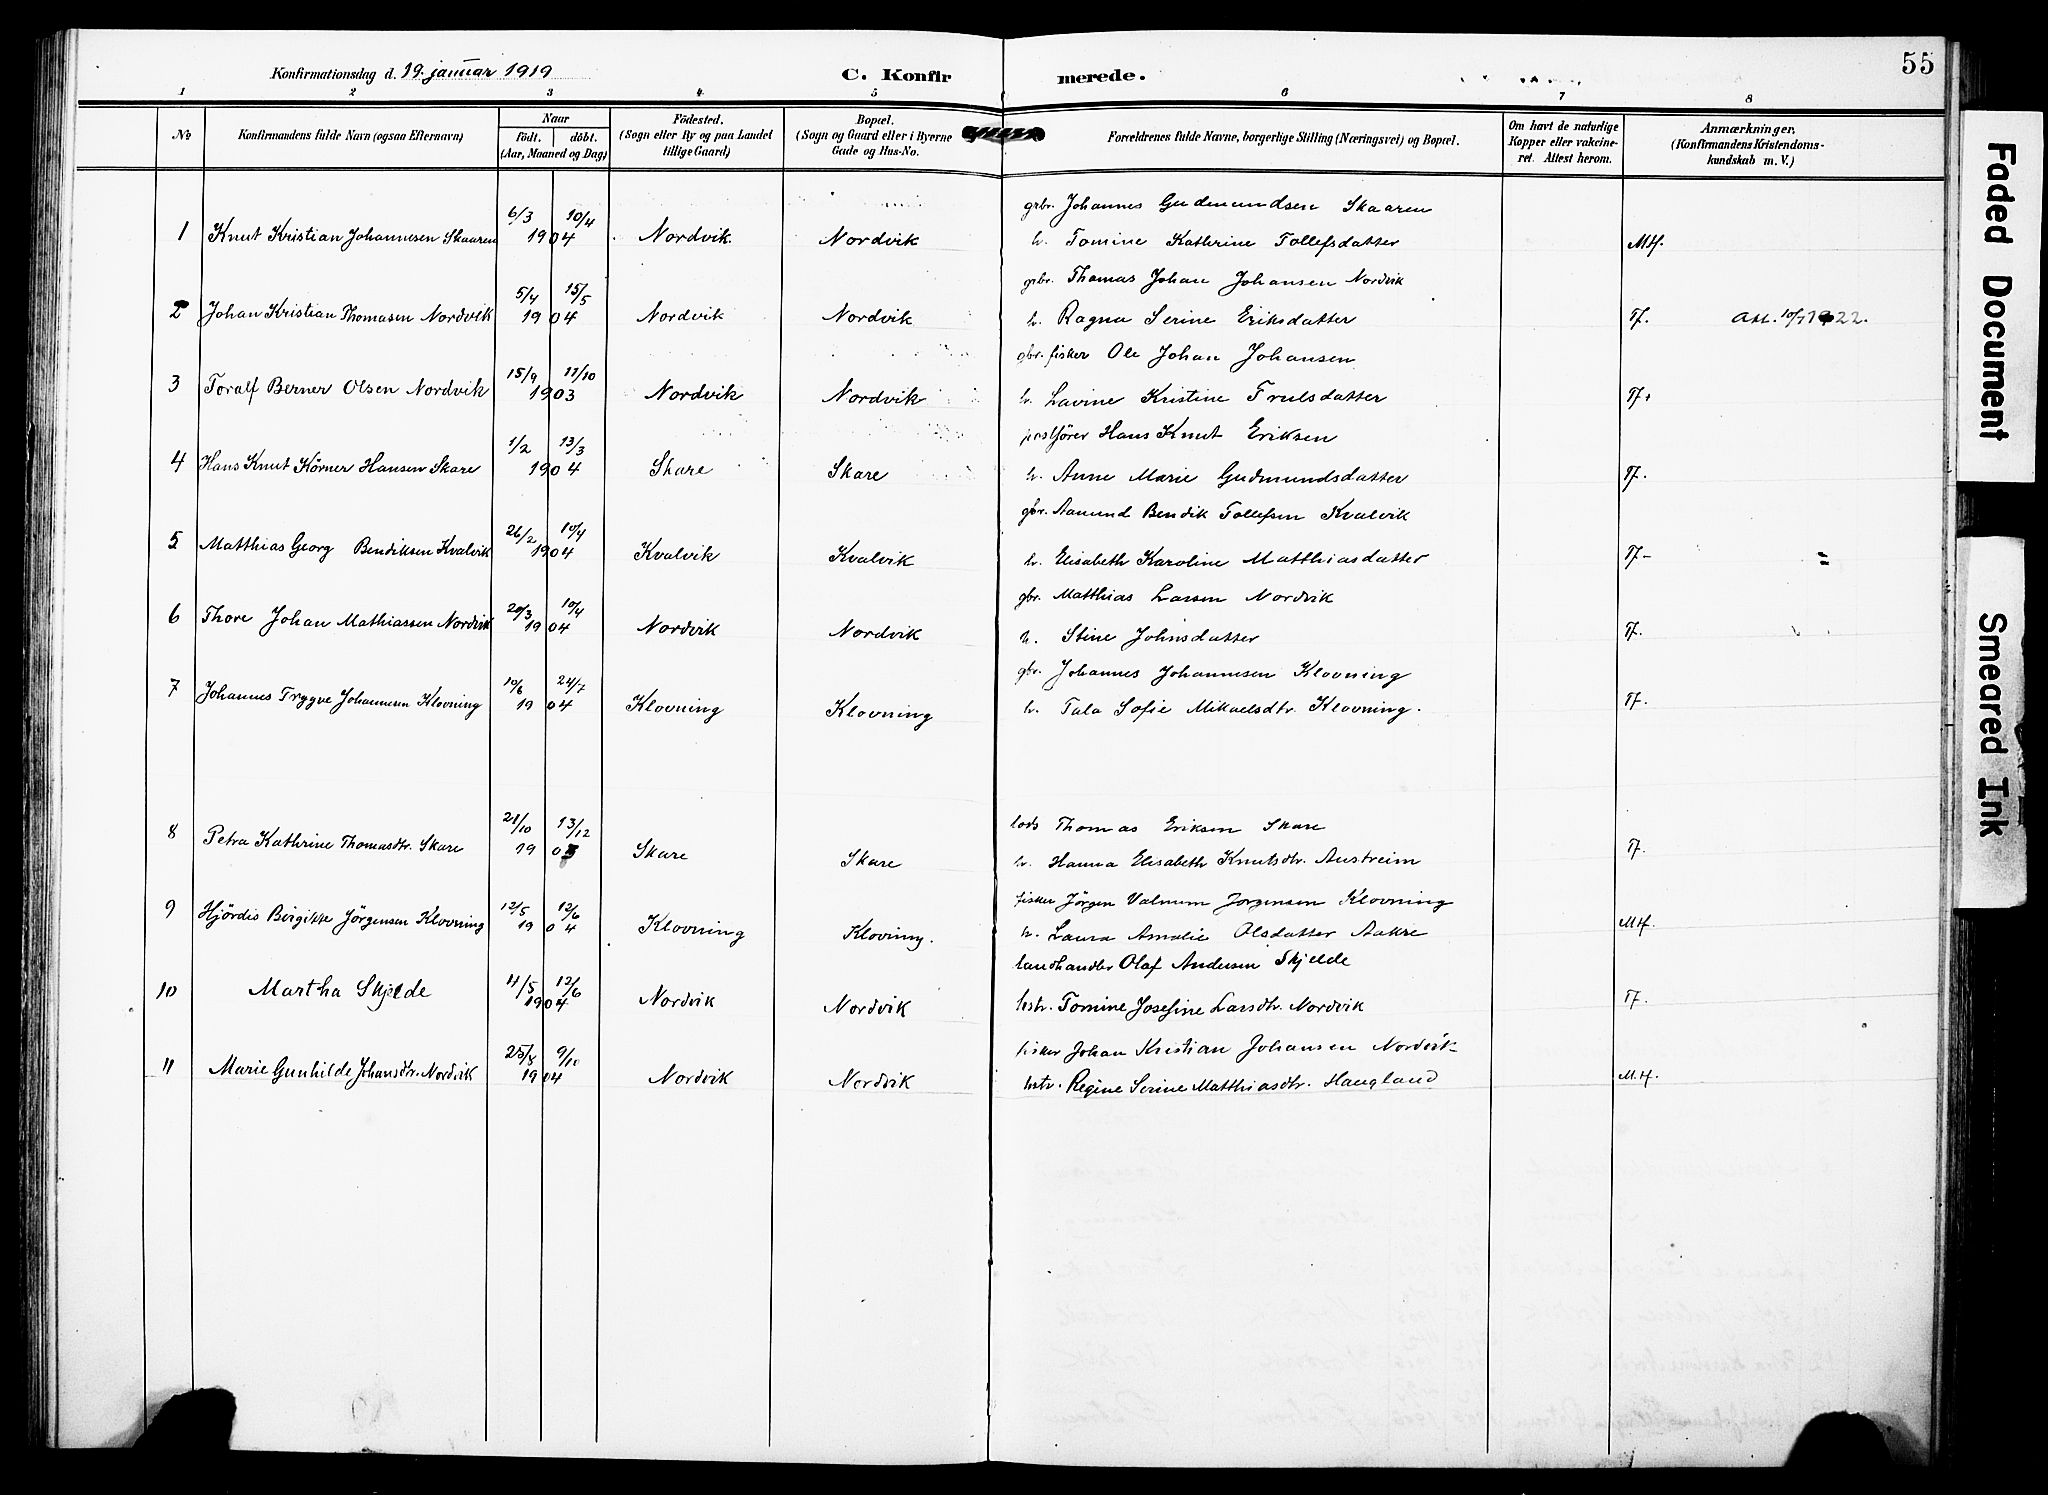 55
Konfirmationsdag d. 19. januar 1919 C. Konfirmerede.
1 2 3 4 5 6 7 8
No Konfirmandens fulde Navn (ogsaa Efternavn) Naar födt. döbt. (Aar, Maaned og Dag) Födested. (Sogn eller By og paa Landet tillige Gaard) Bopæl. (Sogn og Gaard eller i Byerne Gade og Hus-No. Forældrenes fulde Navne, borgerlige Stilling (Næringsvei) og Bopæl. Om havt de naturlige Kopper eller vakcineret. Attest herom. Anmærkninger. (Konfirmandens Kristendomskundskab m. V.)
6/3 10/4 grbr. Johannes Gudmundsen Skaaren
1 Knut Kristian Johannesen Skaaren 1904 Nordvik Nordvik h. Tomine Kathrine Tollefsdatter M.H.
5/4 15/5 grbr. Thomas Johan Johansen Nordvik
2 Johan Kristian Thomasen Nordvik 1904 Nordvik Nordvik h. Ragna Serine Eriksdatter Tf. Att. 10/7 1922.
15/9 11/10 gbr. fisker Ole Johan Johansen
3 Toralf Berner Olsen Nordvik 1903 Nordvik Nordvik h. Lavine Kristine Trulsdatter Tf+
1/2 13/3 postförer Hans Knut Eriksen
4 Hans Knut Körner Hansen Skare 1904 Skare Skare h. Anne Marie Gudmundsdatter Tf.
26/2 10/4 gbr. Aamund Bendik Tollefsen Kvalvik
5 Matthias Georg Bendiksen Kvalvik 1904 Kvalvik Kvalvik h. Elisabeth Karoline Matthiasdatter Tf-
20/3 10/4 gbr. Matthias Larsen Nordvik
6 Thore Johan Mathiassen Nordvik 1904 Nordvik Nordvik h. Stine Johnsdatter Tf.
10/6 24/7 gbr. Johannes Johannesen Klovning
7 Johannes Trygve Johannesen Klovning 1904 Klovning Klovning h. Tala Sofie Mikaelsdtr. Klovning. Tf.
21/10 13/12 lods Thomas Eriksen Skare
8 Petra Kathrine Thomasdtr. Skare 1903 Skare Skare h. Hanna Elisabeth Knutsdtr. Austreim Tf.
12/5 12/6 fisker Jörgen Valnum Jorgensen Klovning
9 Hjördis Birgitte Jörgensen Klovning 1904 Klovning Klovning. h. Laura Amalie Olsdatter Aakre M.H.
4/5 12/6 landhandler Olaf Andersen Skjelde
10 Martha Skjelde 1904 Nordvik Nordvik hstr. Tomine Josefine Larsdtr. Nordvik Tf.
25/8 9/10 fisker Johan Kristian Johansen Nordvik
11 Marie Gunhilde Johansdtr. Nordvik 1904 Nordvik Nordvik hstr. Regine Serine Matthiasdtr. Haugland M.H.
Faded Document
Smeared Ink